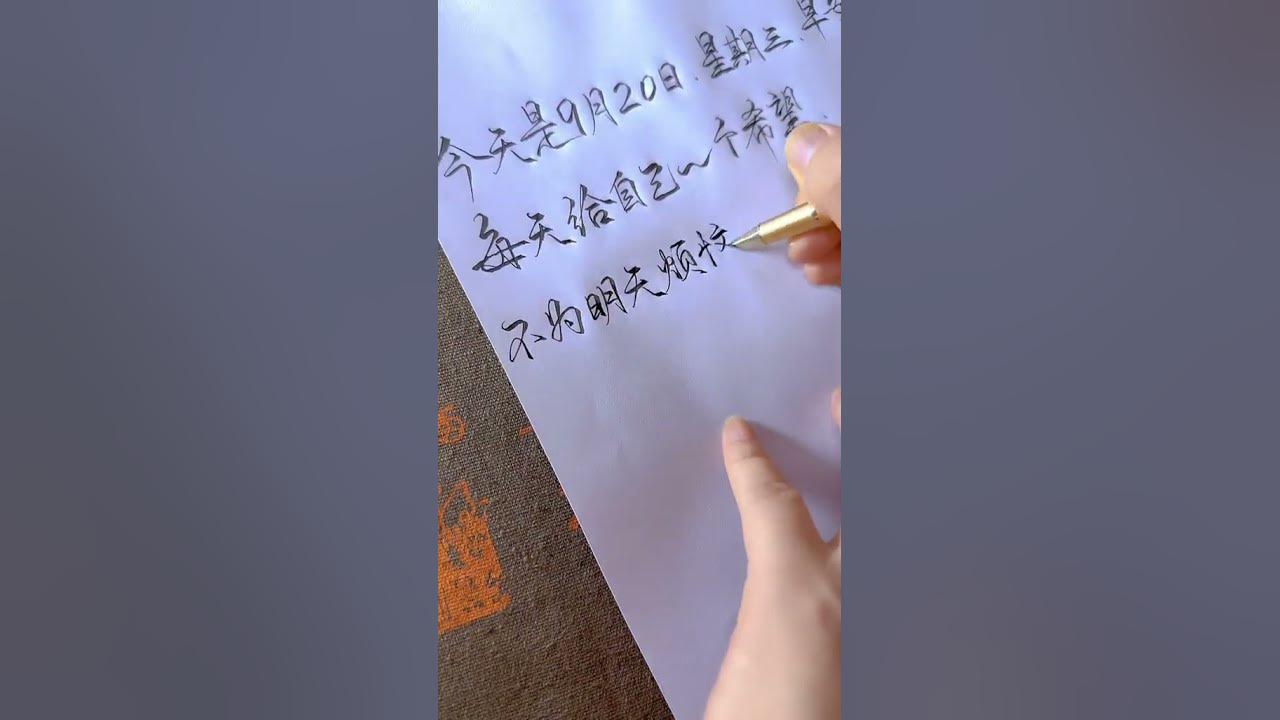 今天是9月20日.星期三.早安
每天给自己一个希望.
不为明天烦